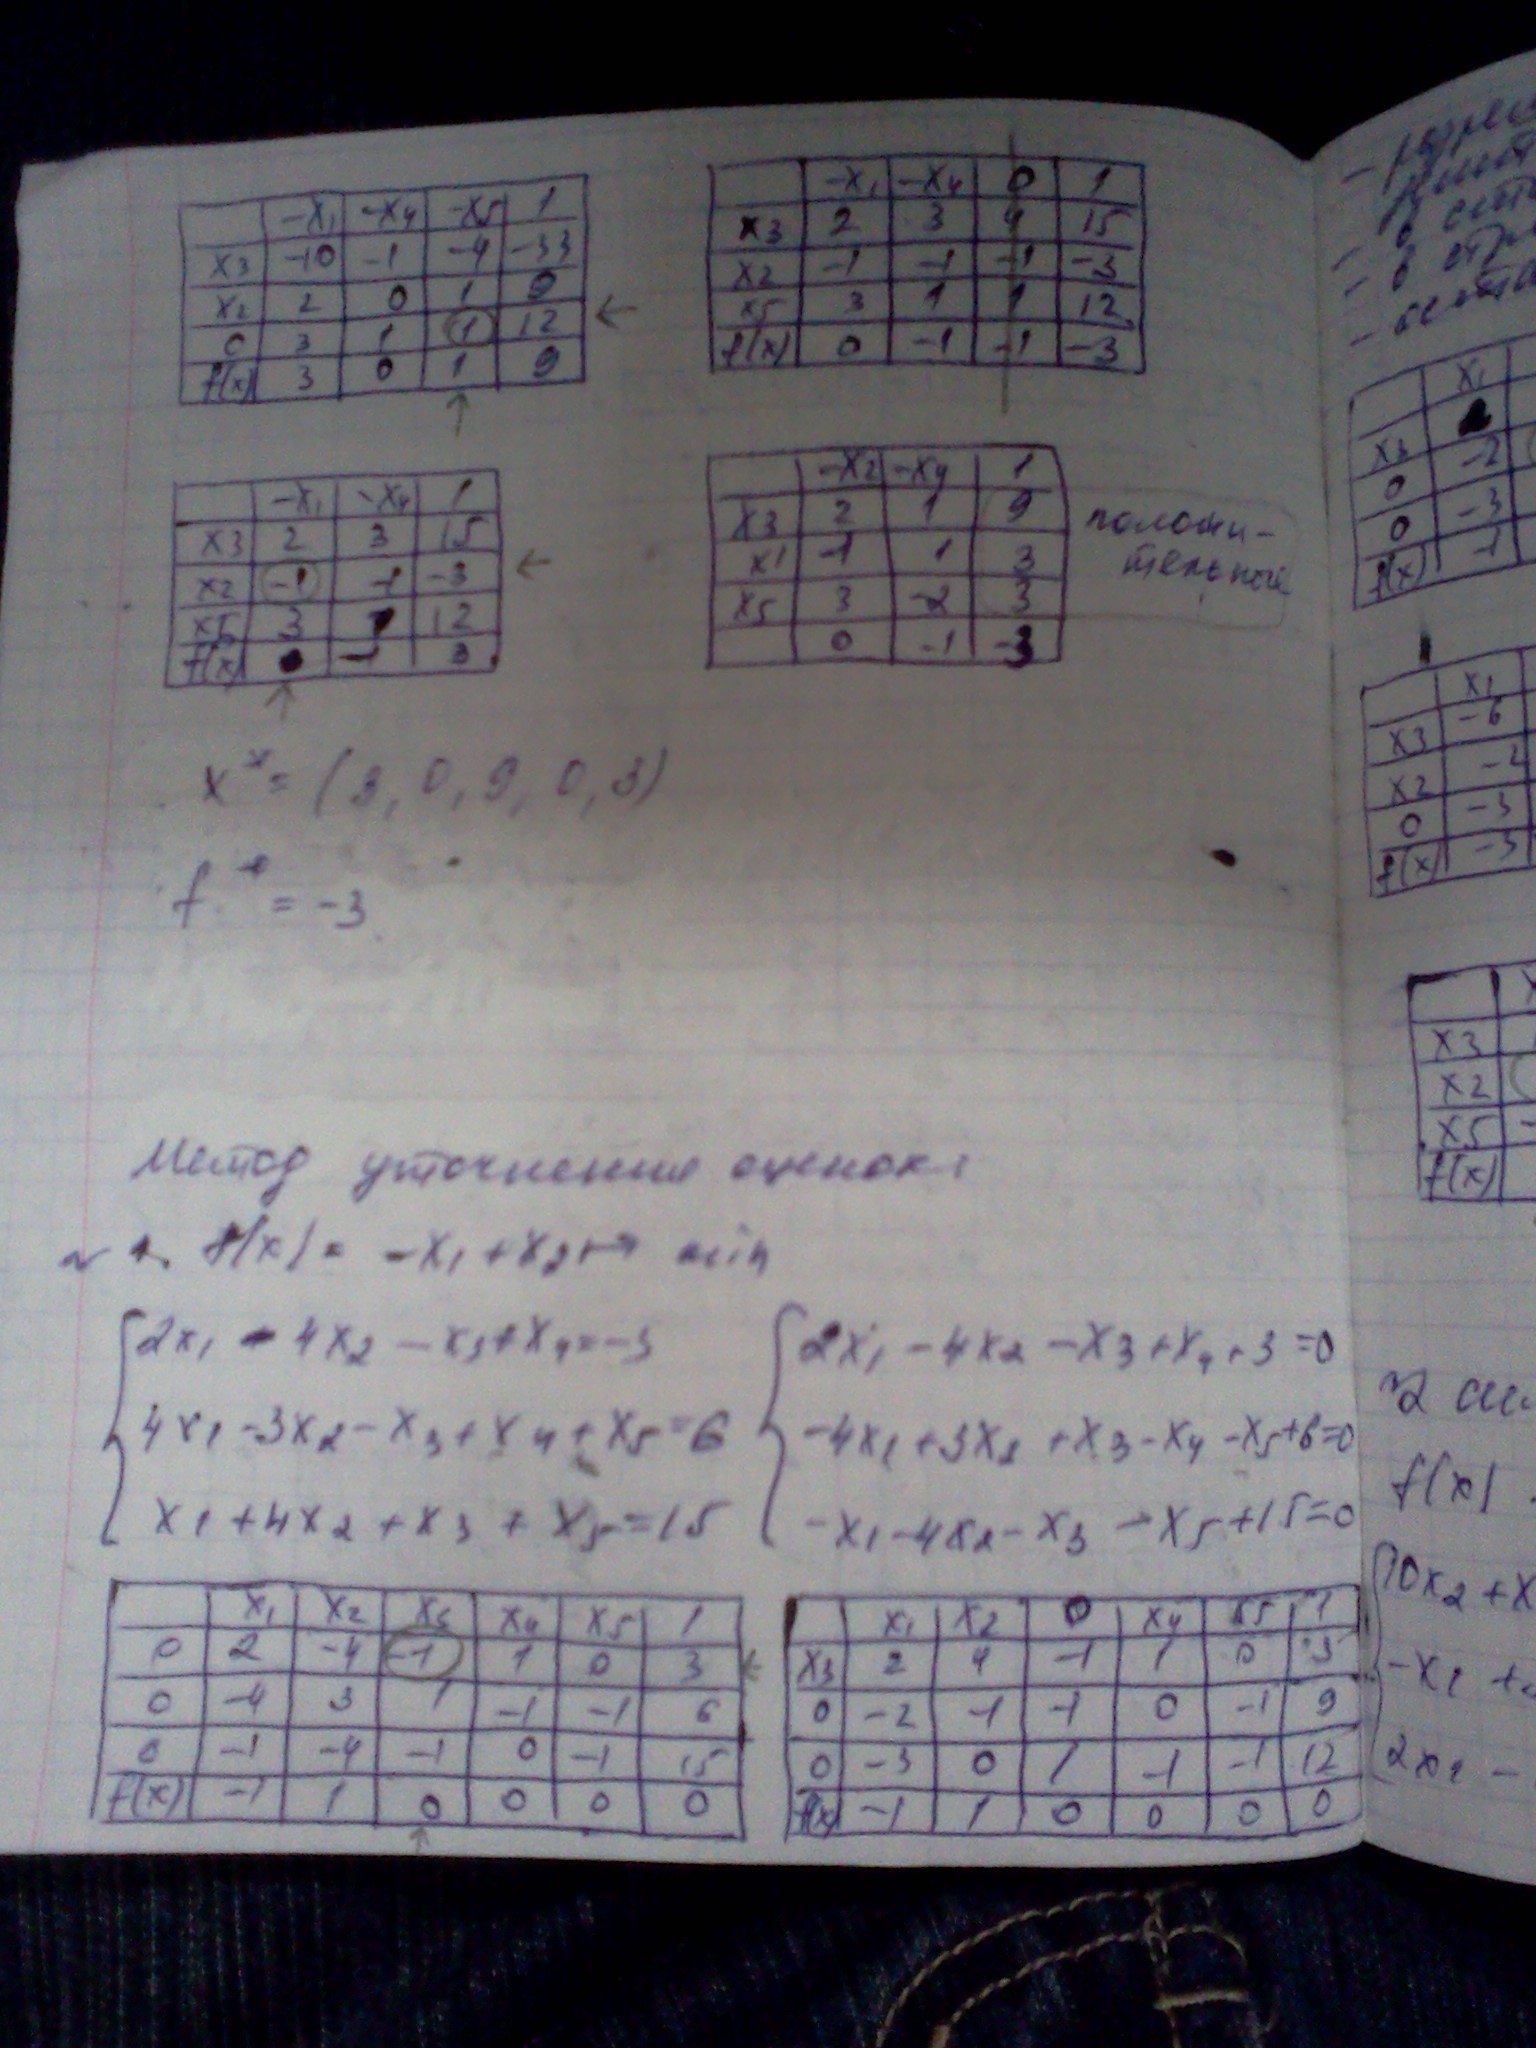 -x1 -x4 -x5 1
x3 -10 -1 -4 -33
x2 2 0 1 9
0 3 1 1 12
f(x) 3 0 1 9
-x1 -x4 0 1
x3 2 3 4 15
x2 -1 -1 -1 -3
x5 3 1 1 12
f(x) 0 -1 -1 -3
-x1 -x4 1
x3 2 3 15
x2 -1 -1 -3
x5 3 12
f(x) -1 3
-x2 -x4 1
x3 2 1 9
x1 -1 1 3
x5 3 -2 3
0 -1 -3
положи-
тельные
x* = (3, 0, 9, 0, 3)
f* = -3
Метод уточнения оценок:
f(x) = -x1 + x2 → min
2x1 - 4x2 - x3 + x4 = -3
4x1 - 3x2 - x3 + x4 + x5 = 6
x1 + 4x2 + x3 + x5 = 15
2x1 - 4x2 - x3 + x4 + 3 = 0
-4x1 + 3x2 + x3 - x4 - x5 + 6 = 0
-x1 - 4x2 - x3 - x5 + 15 = 0
x1 x2 x3 x4 x5 1
0 2 -4 -1 1 0 3
0 -4 3 1 -1 -1 6
0 -1 -4 -1 0 -1 15
f(x) -1 1 0 0 0 0
x1 x2 0 x4 x5 1
x3 2 4 -1 1 0 3
0 -2 -1 -1 0 -1 9
0 -3 0 1 -1 -1 12
f(x) -1 1 0 0 0 0
x1
x3
0 -2
0 -3
f(x) -1
x1
x3 -6
x2 -2
0 -3
f(x) -3
x3
x2
x5
f(x)
f(x)
10x2 + x
-x1 +
2x1 -